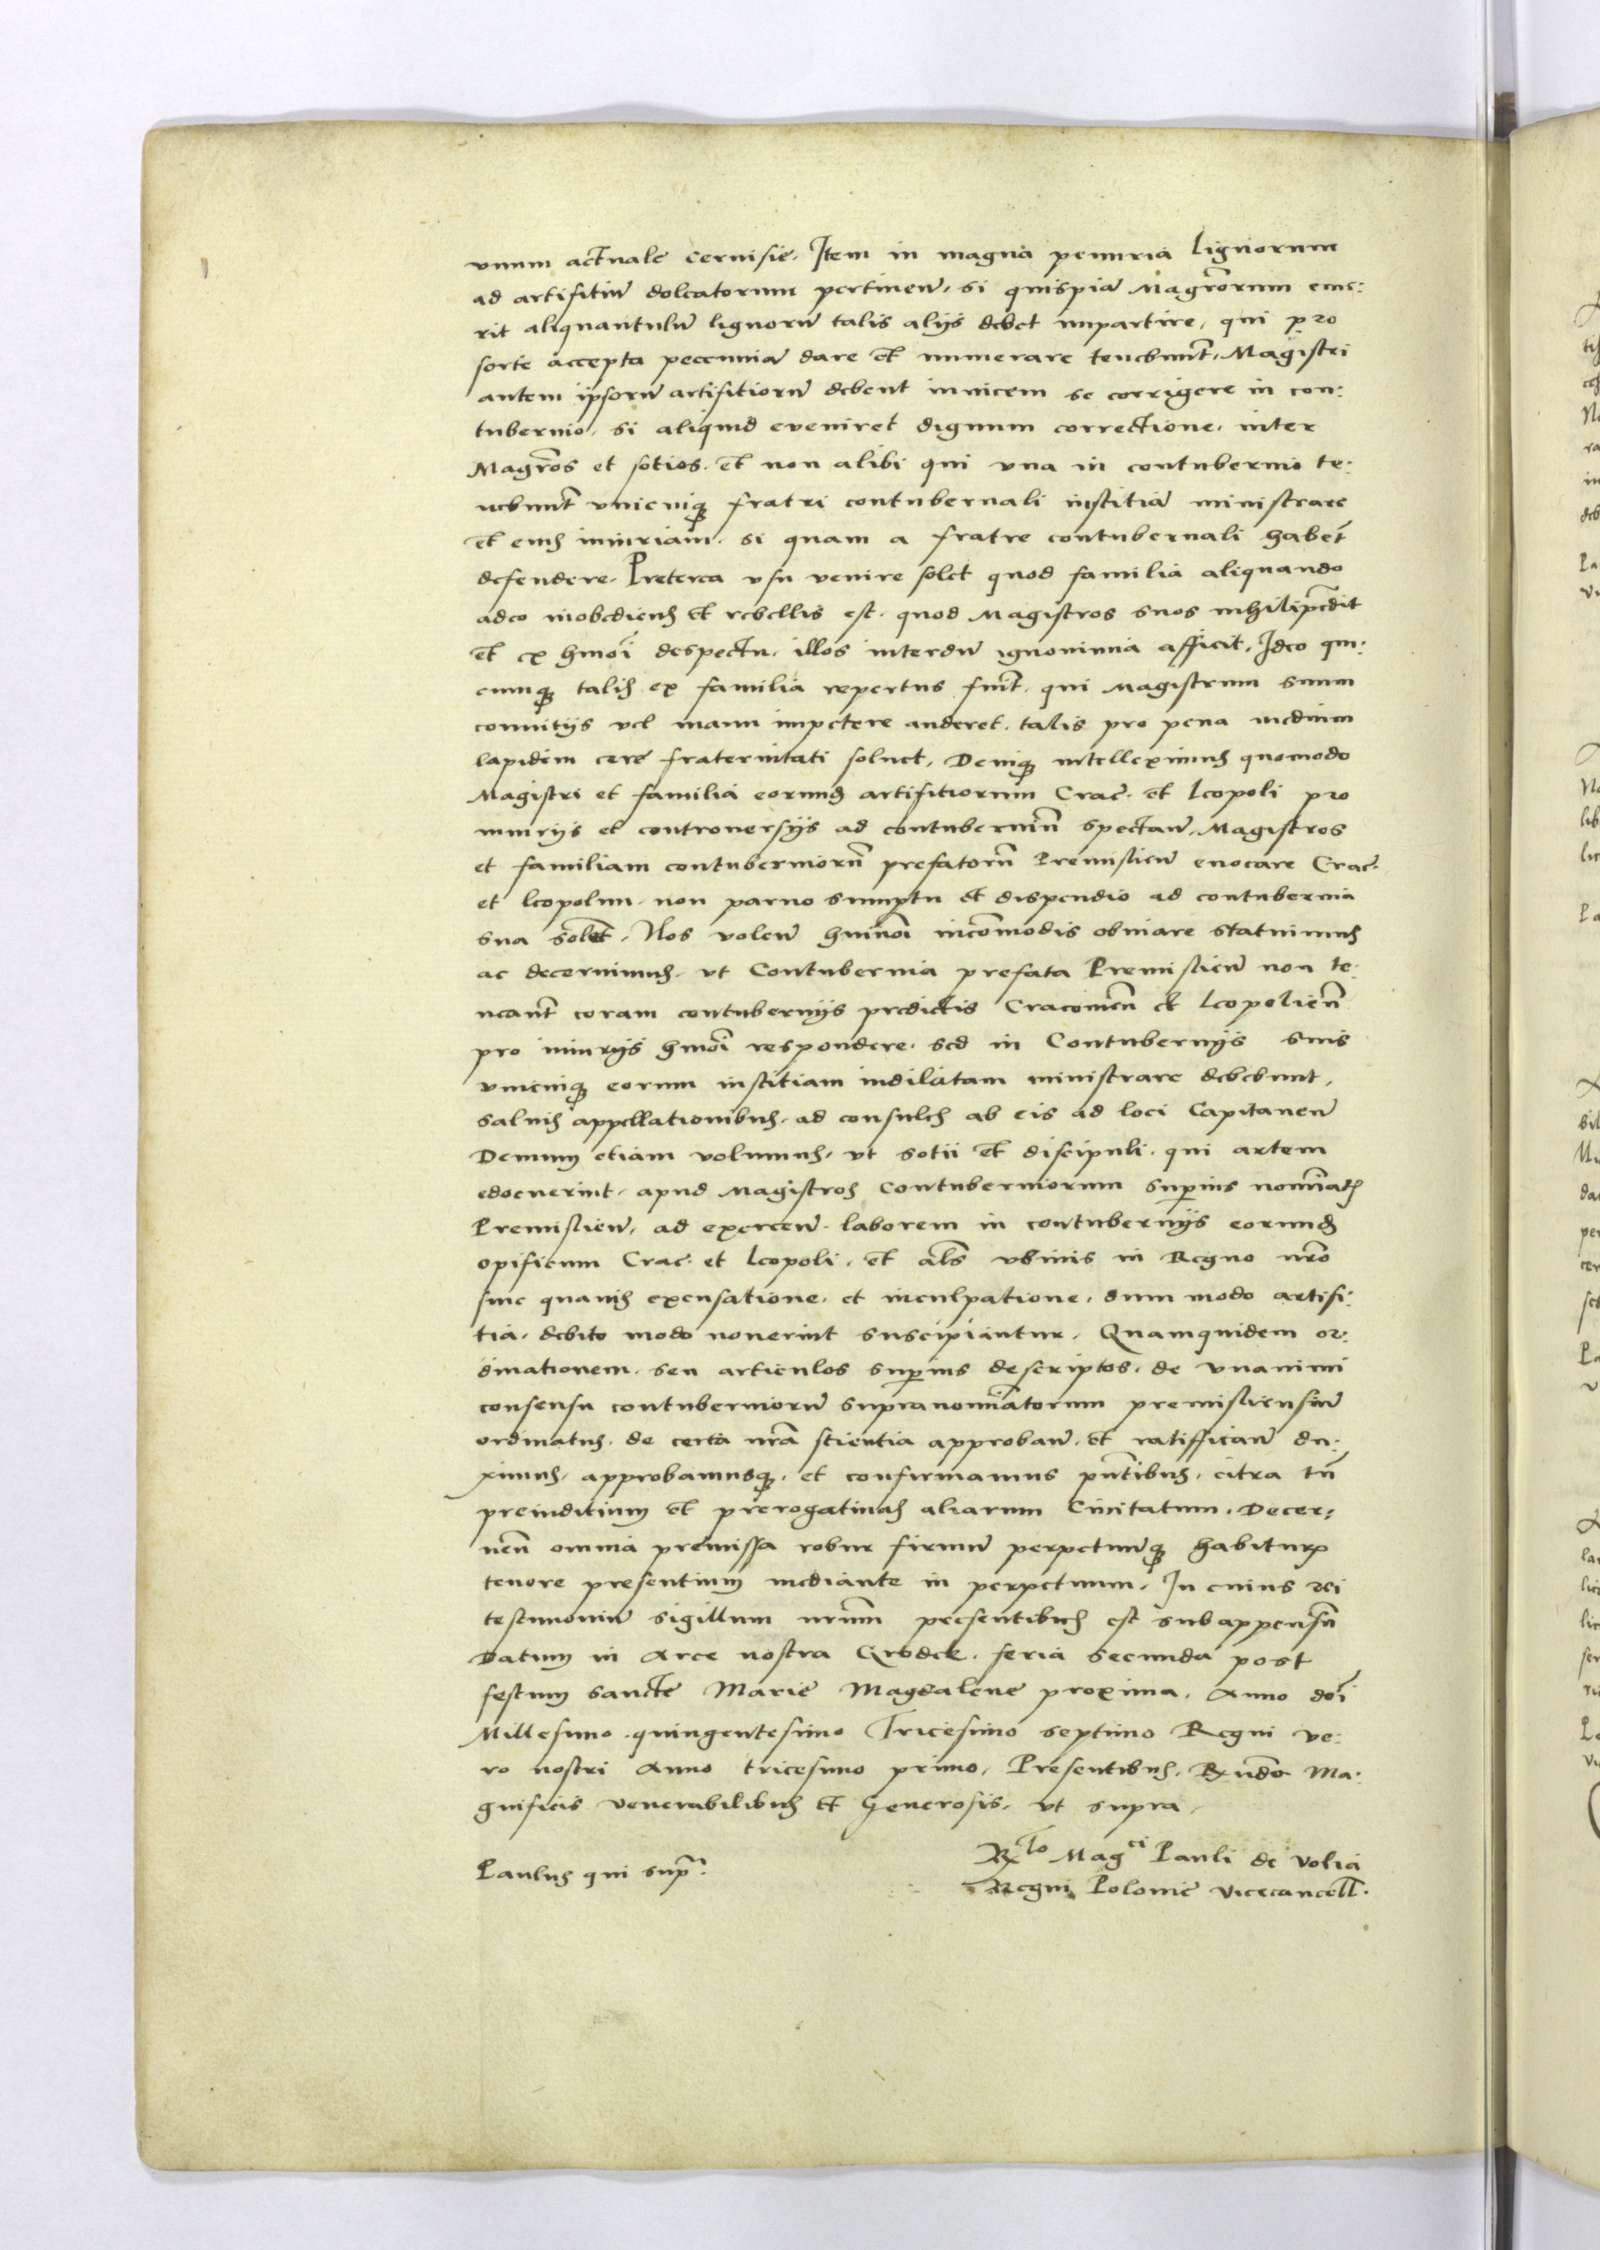 vnum actuale ceruisie. Item in magna penuria lignorum
ad artifitiũ doleatorum pertineñ, si quispiã Magrõrum eme:
rit aliquantulũ lignorũ talis alijs debet impartire, qui pro
sorte accepta peccuniã dare et numerare tenebunt̃, Magistri
autem ipsorũ artifitiorũ debent inuicem se corrigere in con:
tubernio, si aliquid eveniret dignum correctione, inter
Magrõs et sotios. et non alibi qui vna in contubernio te:
nebunt̃ vnicuiq3 fratri contubernali iustitiã ministrare
et eius iniuriam. si quam a fratre contubernali habet̃
defendere. Preterea vsu venire solet quod familia aliquando
adeo inobediens et rebellis est. quod Magistros suos nihilipẽdit
et ex hmõi despectu. illos interdũ ignominia afficit, Ideo qui:
cumq3 talis ex familia repertus fuit̃. qui Magistrum suum
conuitijs vel manu impetere auderet. talis pro pena medium
lapidem cere fraternitati soluet, Deniq3 intelleximus quomodo
Magistri et familia eorund3 artifitiorum Crac̃. et Leopoli pro
iniurijs et controuersijs ad contuberniũ spectañ. Magistros
et familiam contuberniorũ prefatorũ Premislieñ euocare Crac̃.
et Leopolim. non paruo sumptu et dispendio ad contubernia
sua solẽt. Nos voleñ huiusmõi incõmodis obuiare statuimus
ac decernimus. vt Contubernia prefata Premislieñ non te:
neant̃ coram contubernijs predictis Cracouieñ et Leopolieñ
pro iniurijs hmõi respondere. sed in Contubernijs suis
vnicuiq3 eorum iustitiam indilatam ministrare debebunt,
saluis appellationibus. ad consules ab eis ad loci Capitaneũ
Demum etiam volumus. vt sotii et discipuli. qui artem
edocuerint. apud Magistros contuberniorum superius nominatos
Premislieñ, ad exerceñ laborem in contubernijs eorund3
opificum Crac. et Leopoli. et als̃ vbiuis in Regno nrõ
sine quauis excusatione. et inculpatione. dum modo artifi:
tia. debito modo nouerint suscipiantur. Quamquidem or:
dinationem. seu articulos superius descriptos. de vnanimi
consensu contuberniorũ supranominatorum premisliensiũ
ordinatus. de certa nrã scientia approbañ. et ratifficañ du:
ximus. approbamusq3. et confirmamus pñtibus. citra tñ
preiuditium et prerogatiuas aliarum Ciuitatum. Decer:
neñ omnia premissa robur firmũ perpetuũq3 habitura
tenore presentium mediante in perpetuum. In cuius rei
testimoniũ sigillum nrũm presentibus est subappensũ
Datum in Arce nostra Grodek. feria secunda post
festum sancte Marie Magdalene proxima. Anno dñi
Millesimo quingentesimo Tricesimo septimo Regni ve:
ro nostri Anno tricesimo primo. Presentibus. Rẽũdo Ma:
gnificis venerabilibus et Generosis. vt supra.
Paulus qui supᵃ.
Rᵗᵒ Magᶜⁱ Pauli de Volia
Regni Polonie vicecancell.